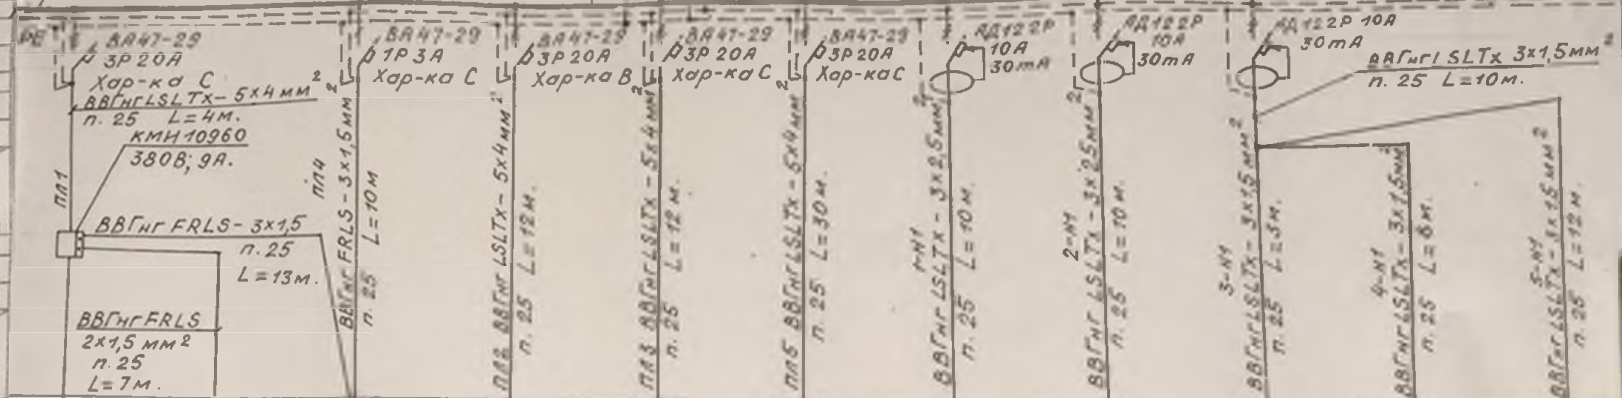 РЕ
ВА47-29
3Р 20А
Хар-ка С
ВВГнгLSLTx-5х4мм²
п. 25 L=4м.
КМИ 10960
380В; 9А.
ПЛ1
ВВГнг FRLS-3х1,5
п. 25
L=13м.
ВВГнг FRLS
2х1,5 мм²
п. 25
L=7м.
ВА47-29
1Р 3А
Хар-ка С
ПЛ4
ВВГнг FRLS-3х1,5мм²
п. 25 L=10м
ВА47-29
3Р 20А
Хар-ка В
ПЛ2 ВВГнг LSLTx-5х4мм²
п. 25 L=12м.
ВА47-29
3Р 20А
Хар-ка С
ПЛ3 ВВГнг LSLTx-5х4мм²
п. 25 L=12 м.
ВА47-29
3Р 20А
Хар-ка С
ПЛ5 ВВГнг LSLTx-5х4мм²
п. 25 L=30м.
АД12 2Р
10А
30mA
1-Н1
ВВГнг LSLTx-3х2,5мм²
п. 25 L=10м.
АД12 2Р
10А
30mA
2-Н1
ВВГнг LSLTx-3х2,5мм²
п. 25 L=10м.
АД12 2Р 10А
30mA
ВВГнг LSLTx 3х1,5мм²
п. 25 L=10м.
3-Н1
ВВГнг LSLTx-3х1,5мм²
п. 25 L=3м.
4-Н1
ВВГнг LSLTx-3х1,5мм²
п. 25 L=6м.
5-Н1
ВВГнг LSLTx-3х1,5мм²
п. 25 L=12м.